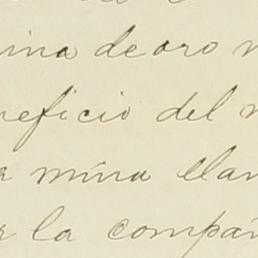 mina de oro
neficio del
mina ella
r la compañ